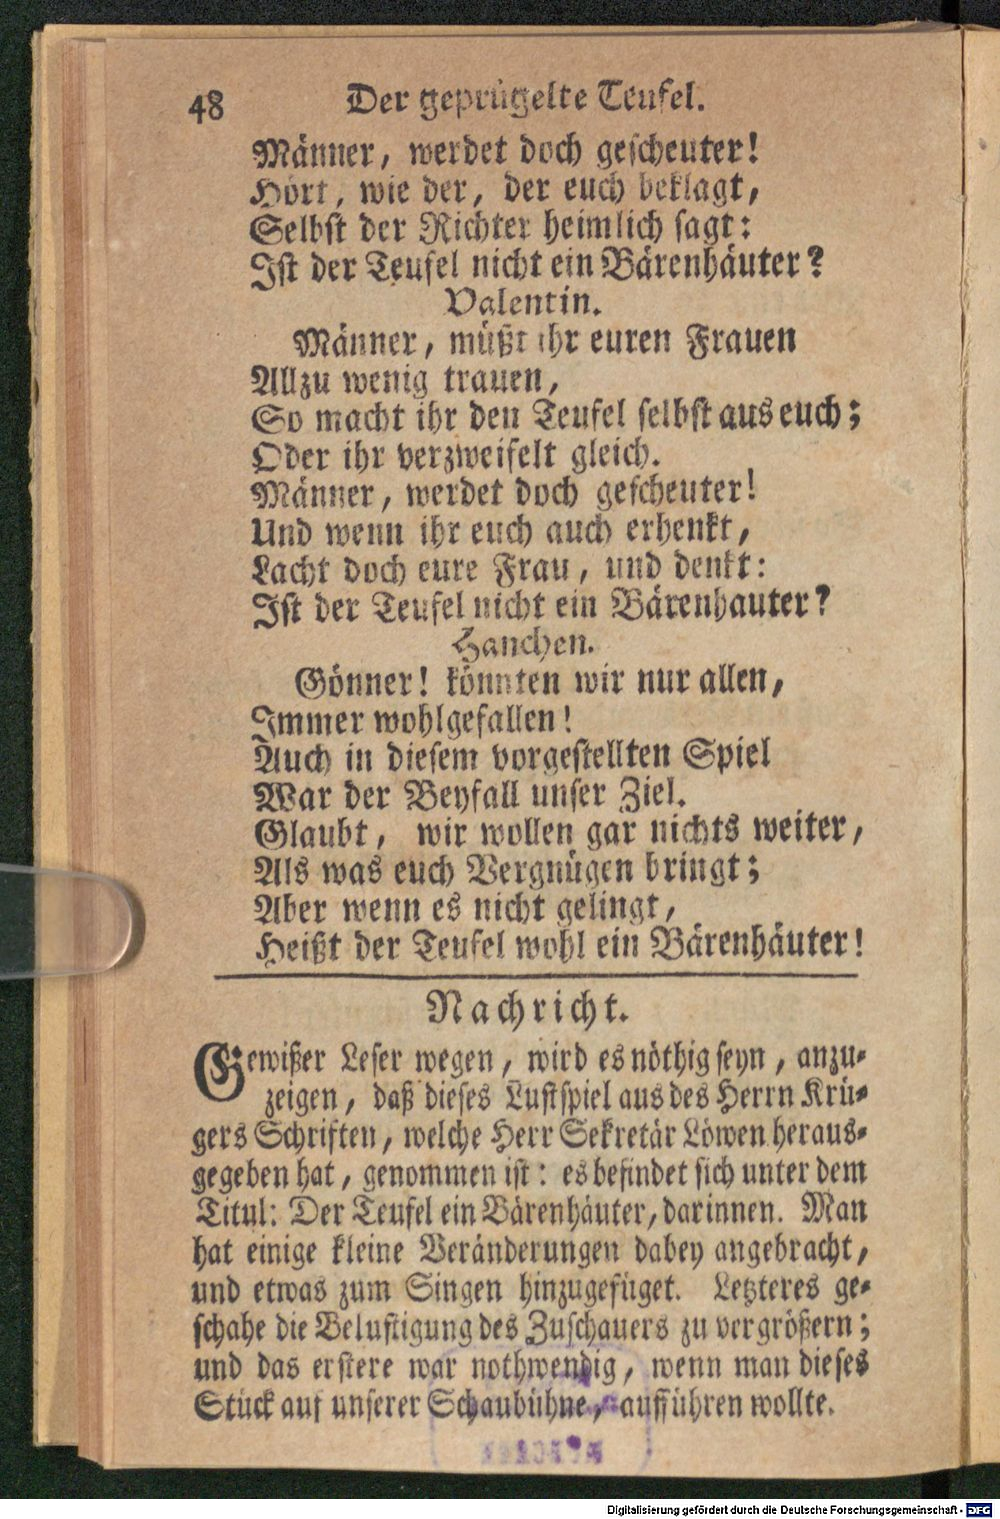 48 Der geprügelte Teufel.
Männer, werdet doch gescheuter!
Hört, wie der, der euch beklagt,
Selbst der Richter heimlich sagt:
Ist der Teufel nicht ein Bärenhäuter?
Valentin.
Männer, müßt ihr euren Frauen
Allzu wenig trauen,
So macht ihr den Teufel selbst aus euch;
Oder ihr verzweifelt gleich.
Männer, werdet doch gescheuter!
Und wenn ihr euch auch erhenkt,
Lacht doch eure Frau, und denkt:
Ist der Teufel nicht ein Bärenhauter?
Hanchen.
Gönner! könnten wir nur allen,
Immer wohlgefallen!
Auch in diesem vorgestellten Spiel
War der Beyfall unser Ziel.
Glaubt, wir wollen gar nichts weiter,
Als was euch Vergnügen bringt;
Aber wenn es nicht gelingt,
Heißt der Teufel wohl ein Bärenhäuter!
Nachricht.
Gewißer Leser wegen, wird es nöthig seyn, anzu-
zeigen, daß dieses Lustspiel aus des Herrn Krü-
gers Schriften, welche Herr Sekretär Löwen heraus-
gegeben hat, genommen ist: es befindet sich unter dem
Titul: Der Teufel ein Bärenhäuter, darinnen. Man
hat einige kleine Veränderungen dabey angebracht,
und etwas zum Singen hinzugefüget. Letzteres ge-
schahe die Belustigung des Zuschauers zu vergrößern;
und das erstere war nothwendig, wenn man dieses
Stück auf unserer Schaubühne, aufführen wollte.
Digitalisierung gefördert durch die Deutsche Forschungsgemeinschaft - DFG